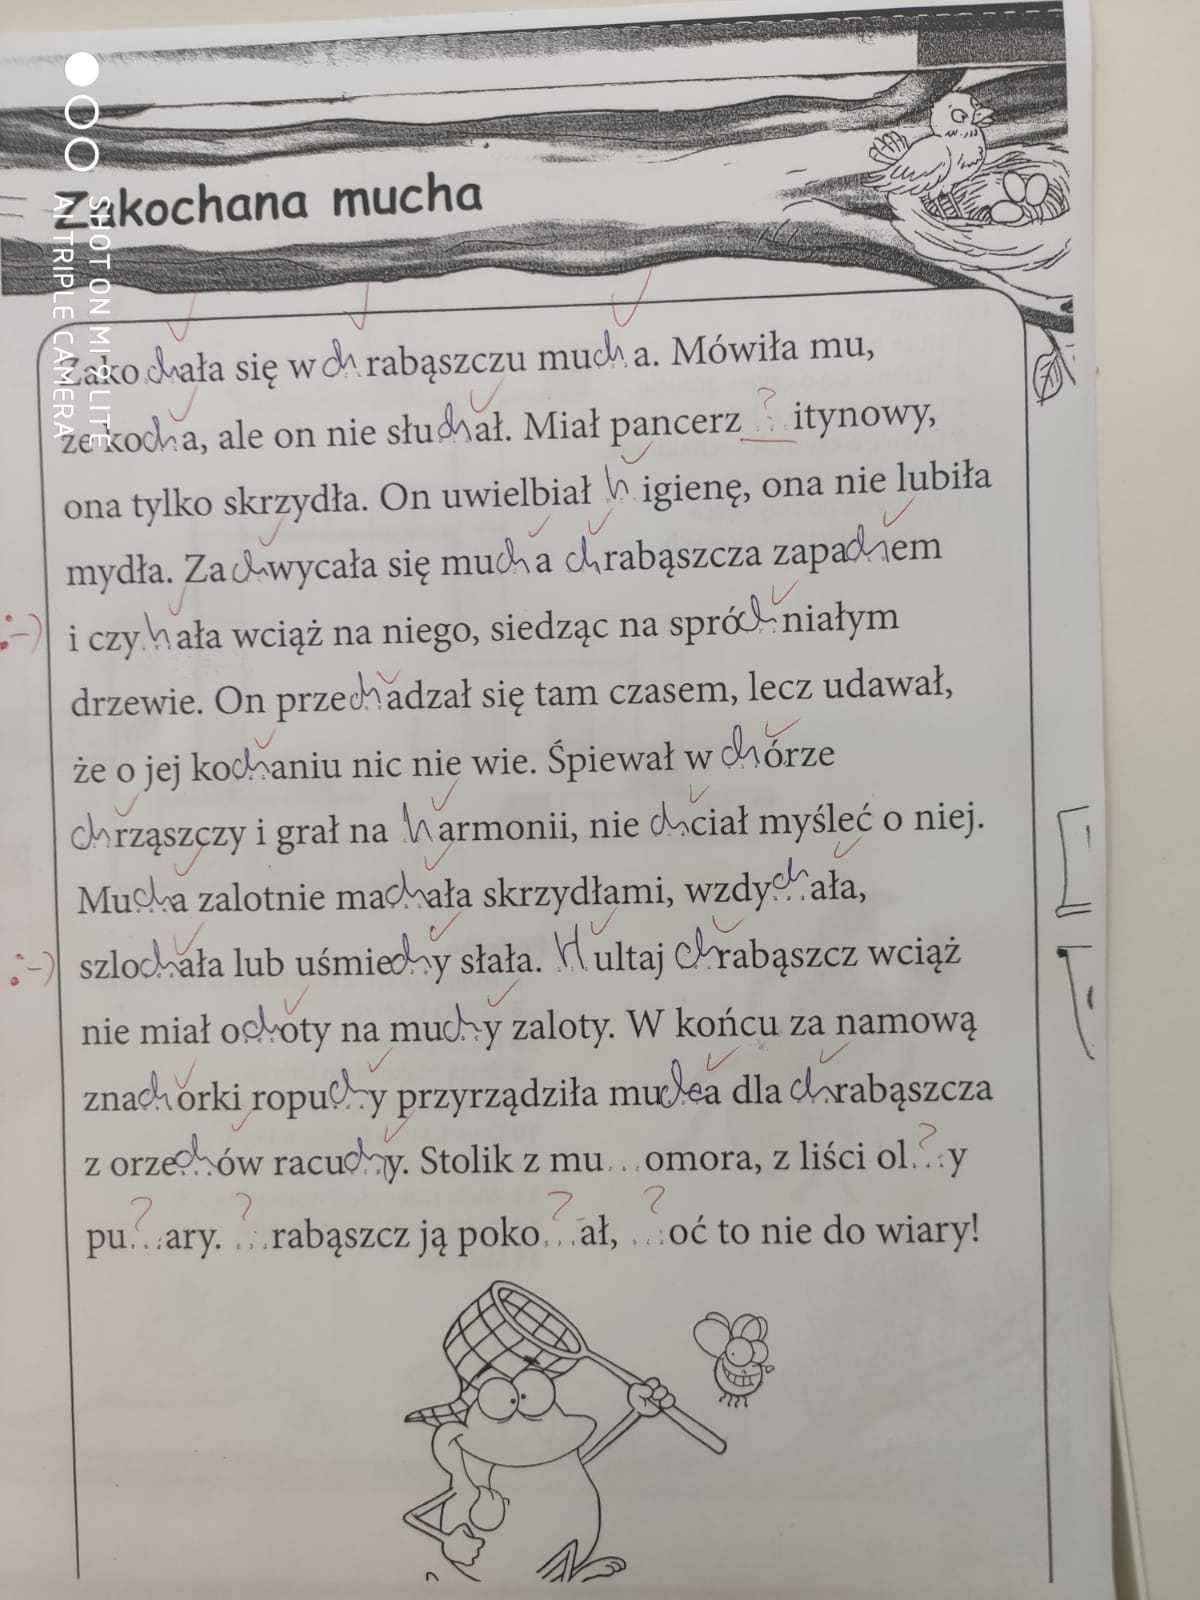 Zakochana mucha
SHOT ON MI 9 LITE
AI TRIPLE CAMERA
Zakochała się w chrabąszczu mucha. Mówiła mu,
że kocha, ale on nie słuchał. Miał pancerz ?...itynowy,
ona tylko skrzydła. On uwielbiał higienę, ona nie lubiła
mydła. Zachwycała się mucha chrabąszcza zapachem
:-) i czyhała wciąż na niego, siedząc na spróchniałym
drzewie. On przechadzał się tam czasem, lecz udawał,
że o jej kochaniu nic nie wie. Śpiewał w chórze
chrząszczy i grał na harmonii, nie chciał myśleć o niej.
Mucha zalotnie machała skrzydłami, wzdychała,
:-) szlochała lub uśmiechy słała. Hultaj chrabąszcz wciąż
nie miał ochoty na muchy zaloty. W końcu za namową
znachorki ropuchy przyrządziła mucha dla chrabąszcza
z orzechów racuchy. Stolik z mu...omora, z liści ol?...y
pu?...ary. ?...rabąszcz ją poko?...ał, ?...oć to nie do wiary!